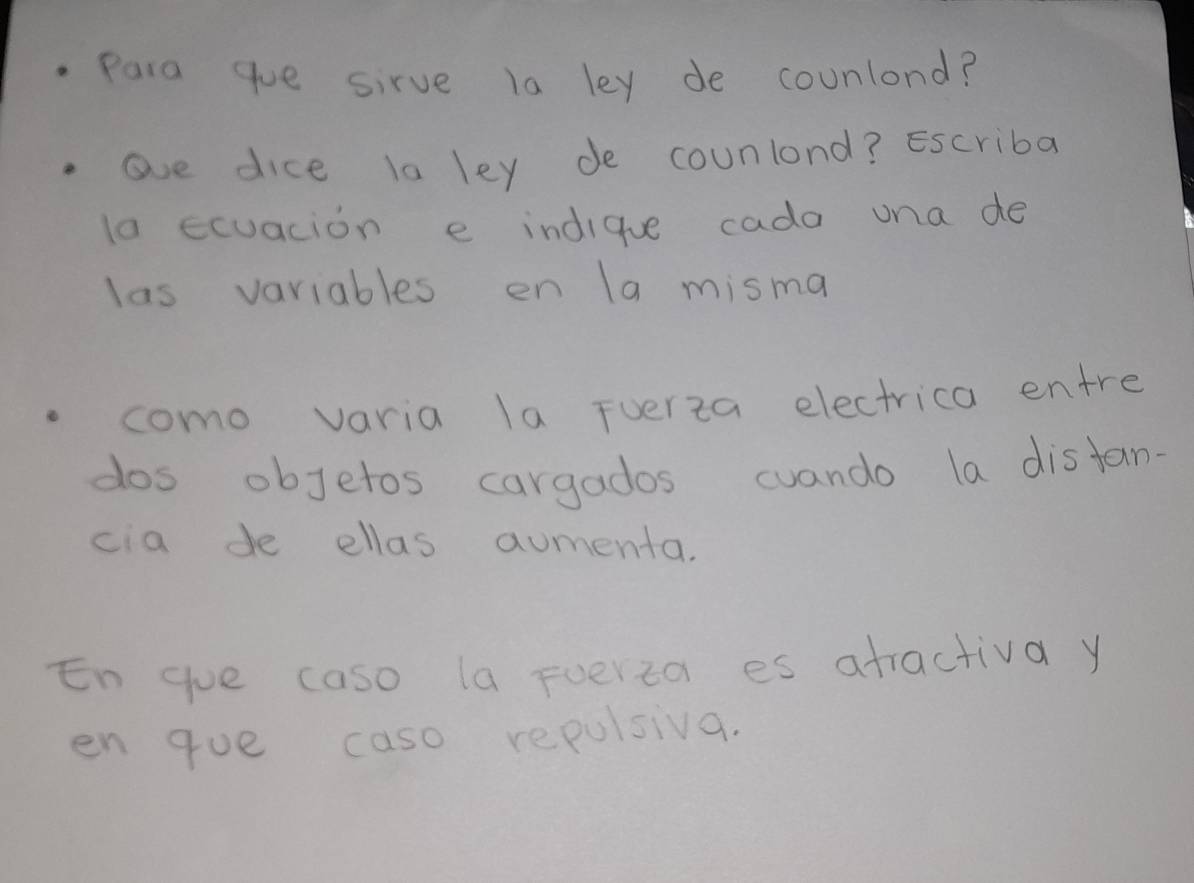 • Para que sirve la ley de counlond?
• Que dice la ley de counlond? Escriba
la ecuación e indique cada una de
las variables en la misma
• como varia la Fuerza electrica entre
dos objetos cargados cuando la distan-
cia de ellas aumenta.
En que caso la Fuerza es atractiva y
en que caso repulsiva.